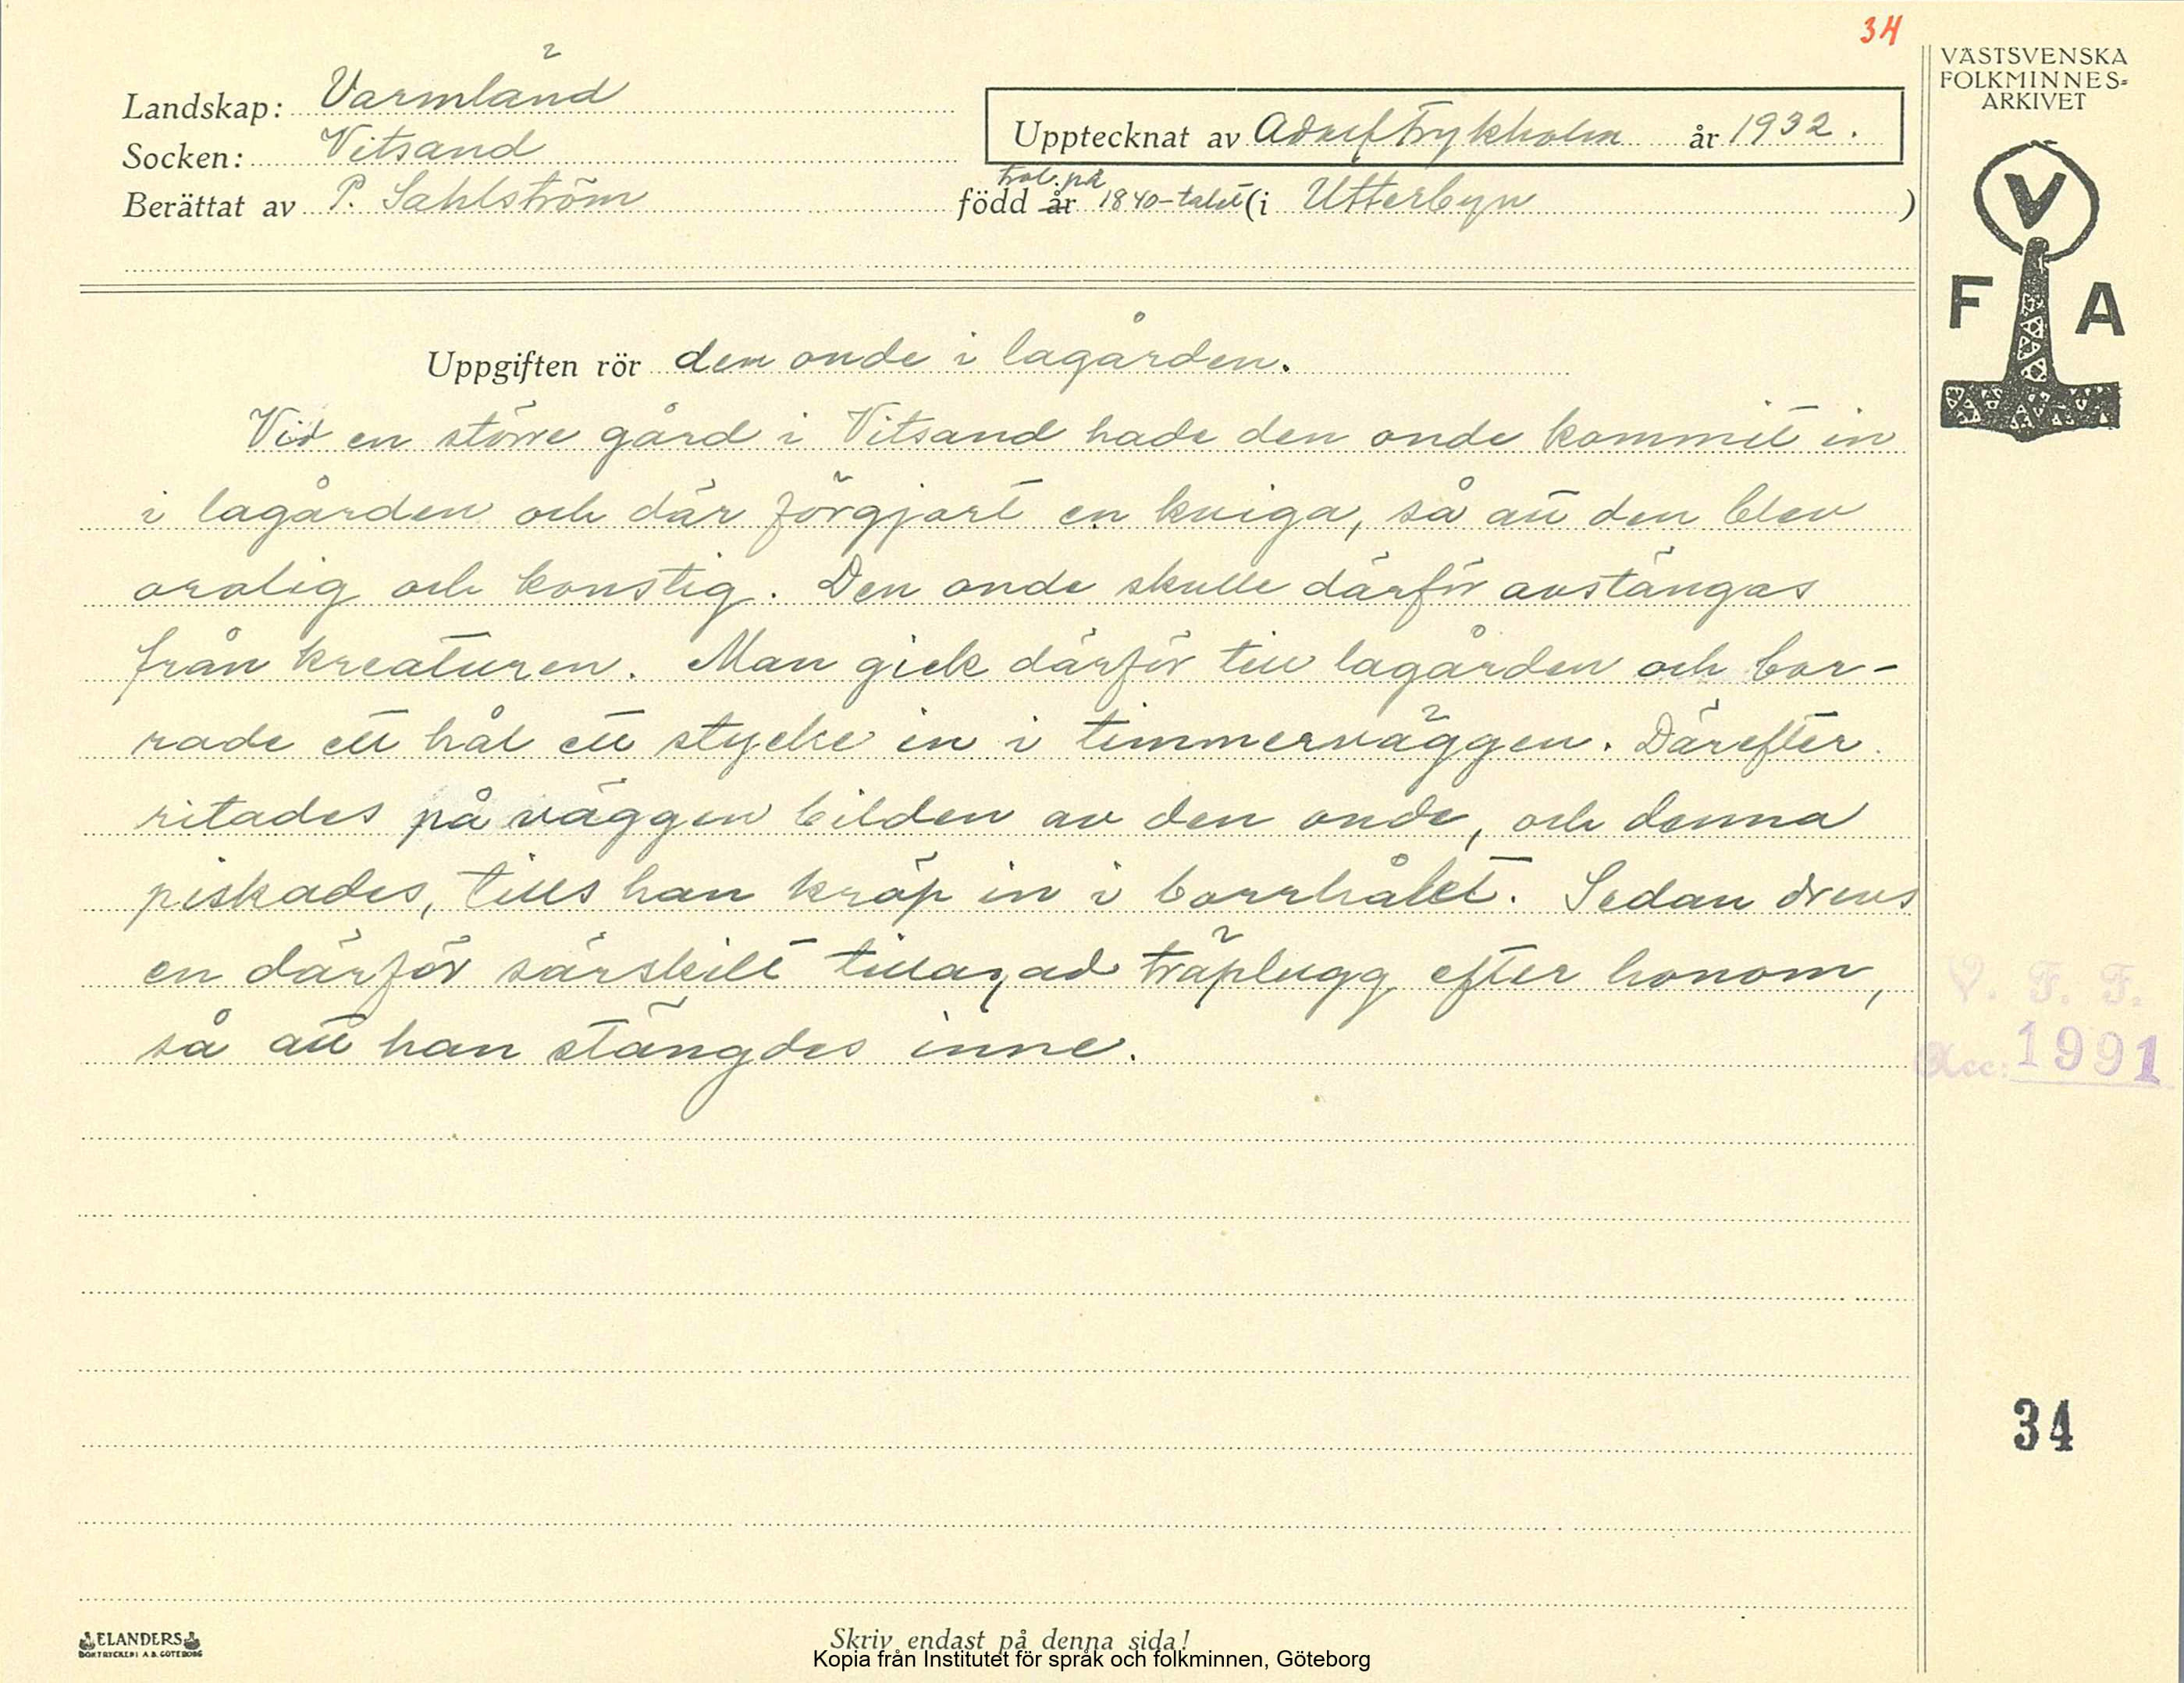 34
VÄSTSVENSKA
FOLKMINNES-
ARKIVET
Landskap: Värmland
Upptecknat av Adolf Frykholm år 1932.
Socken: Vitsand
trol. på
Berättat av P. Sahlström född år 1840-talet (i Utterbyn )
V
F A
Uppgiften rör den onde i lagården.
Vid en större gård i Vitsand hade den onde kommit in
i lagården och där förgjort en kviga, så att den blev
orolig och konstig. Den onde skulle därför avstängas
från kreaturen. Man gick därför till lagården och bor-
rade ett hål ett stycke in i timmerväggen. Därefter
ritades på väggen bilden av den onde, och denna
piskades, tills han kröp in i borrhålet. Sedan drevs
en därför särskilt tillagad träplugg efter honom,
så att han stängdes inne.
V. F. F.
Acc: 1991
34
ELANDERS
BOKTRYCKERI A.B. GÖTEBORG
Skriv endast på denna sida!
Kopia från Institutet för språk och folkminnen, Göteborg